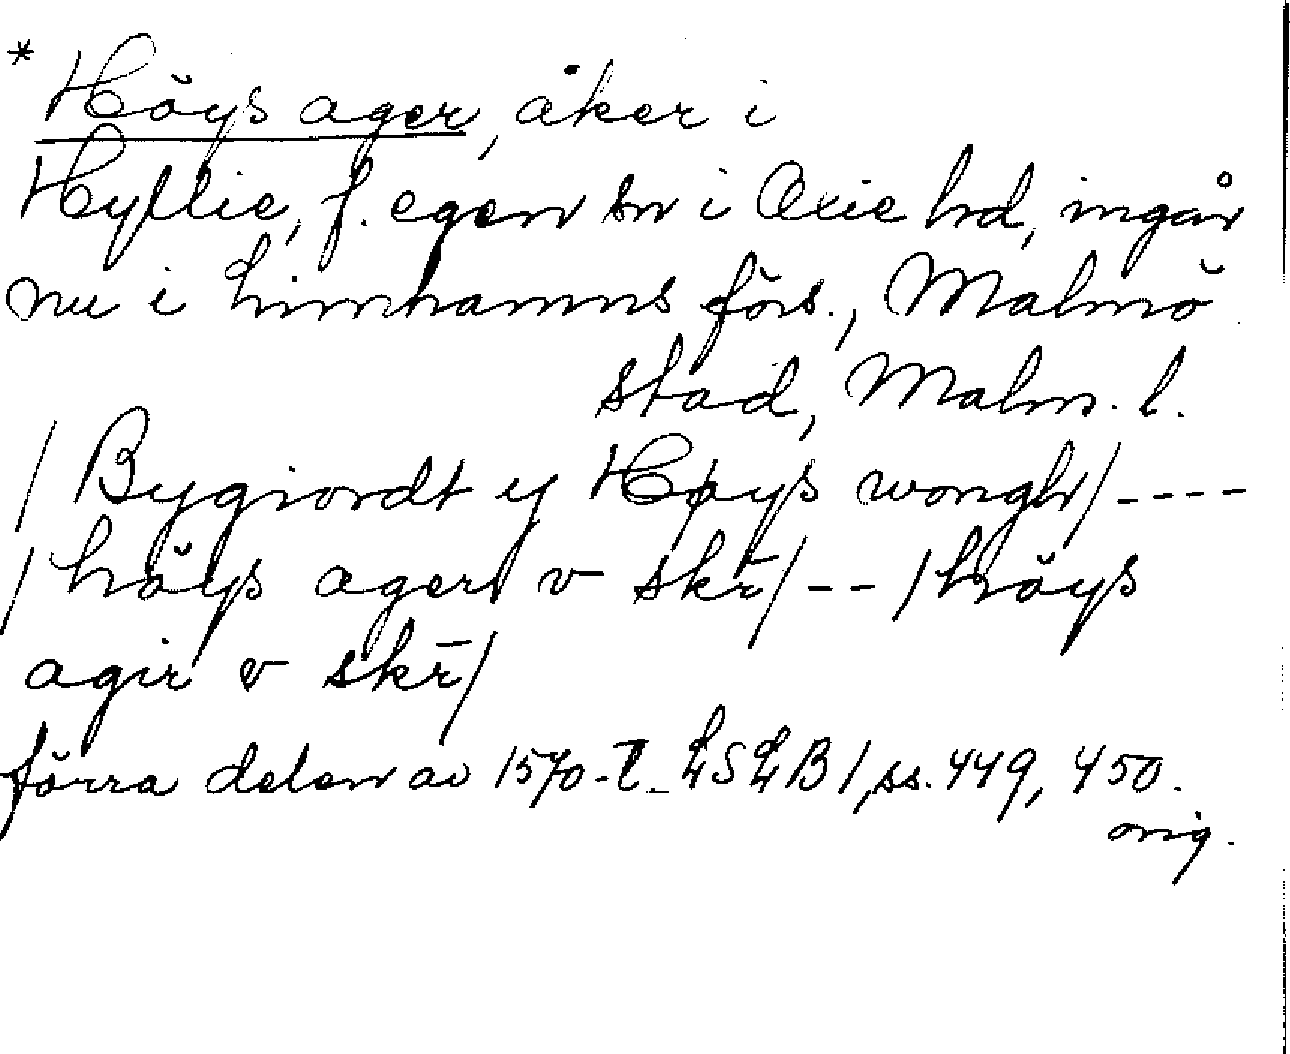 * Höys ager, åker i
Hyllie, f. egen sn i Oxie hd, ingår
nu i Limhamns förs., Malmö
stad, Malm. l.
/ Bygiordt y Høys wongh/ ----
/ höys ager v skr̄/ -- / höys
agir v skr̄/
förra delen av 1570-t. LSLB 1, ss. 449, 450.
orig.